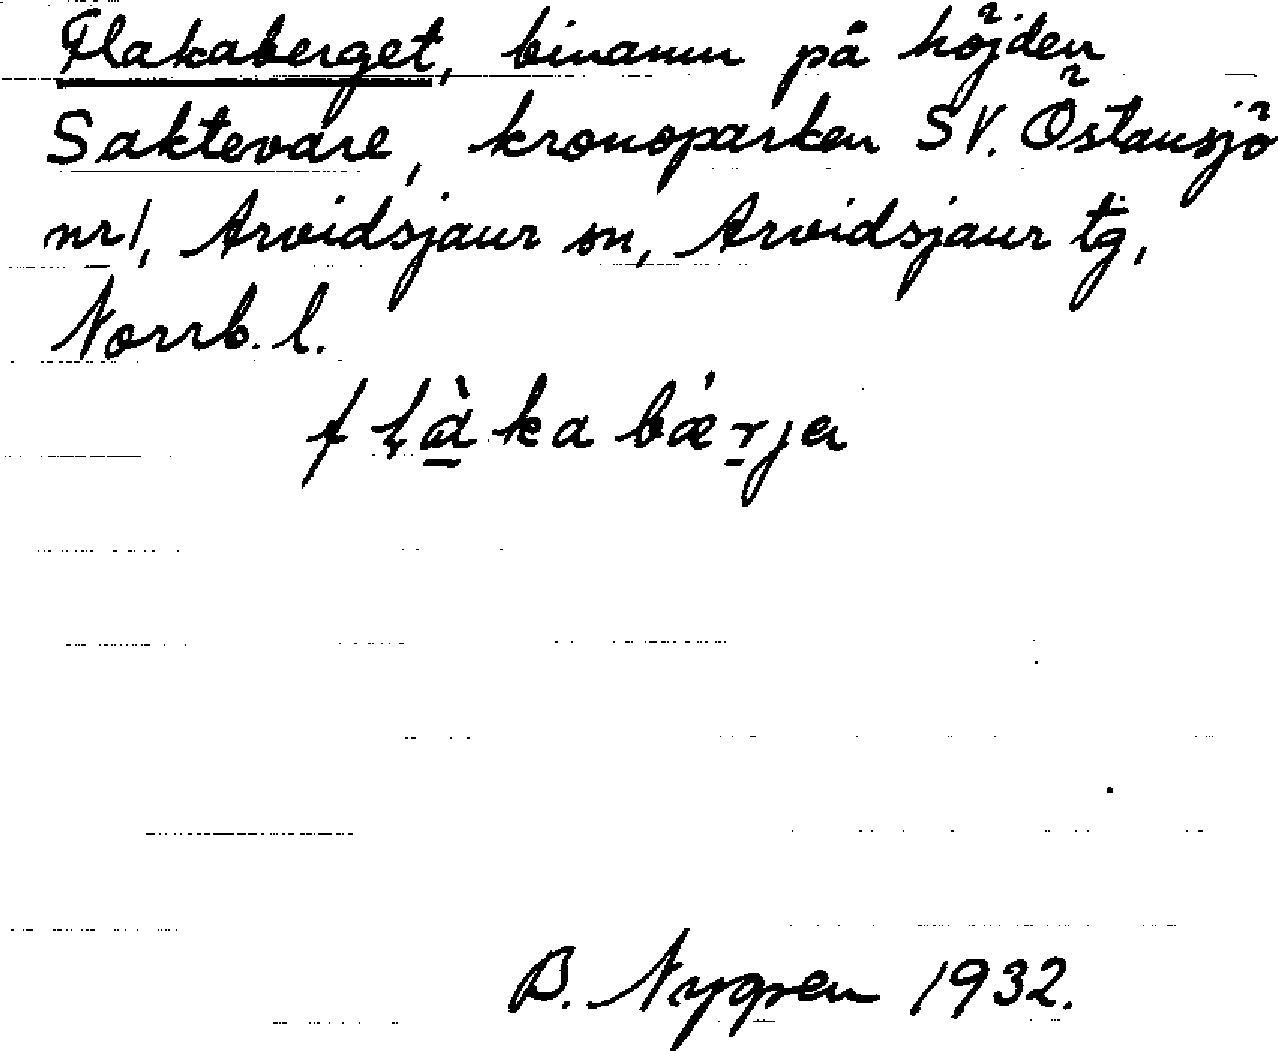 Flakaberget, binamn på höjden
Saktevare, kronoparken SV. Östansjö
nr 1, Arvidsjaur sn, Arvidsjaur tg,
Norrb. l.
flàka bǽrja
B. Nygren 1932.